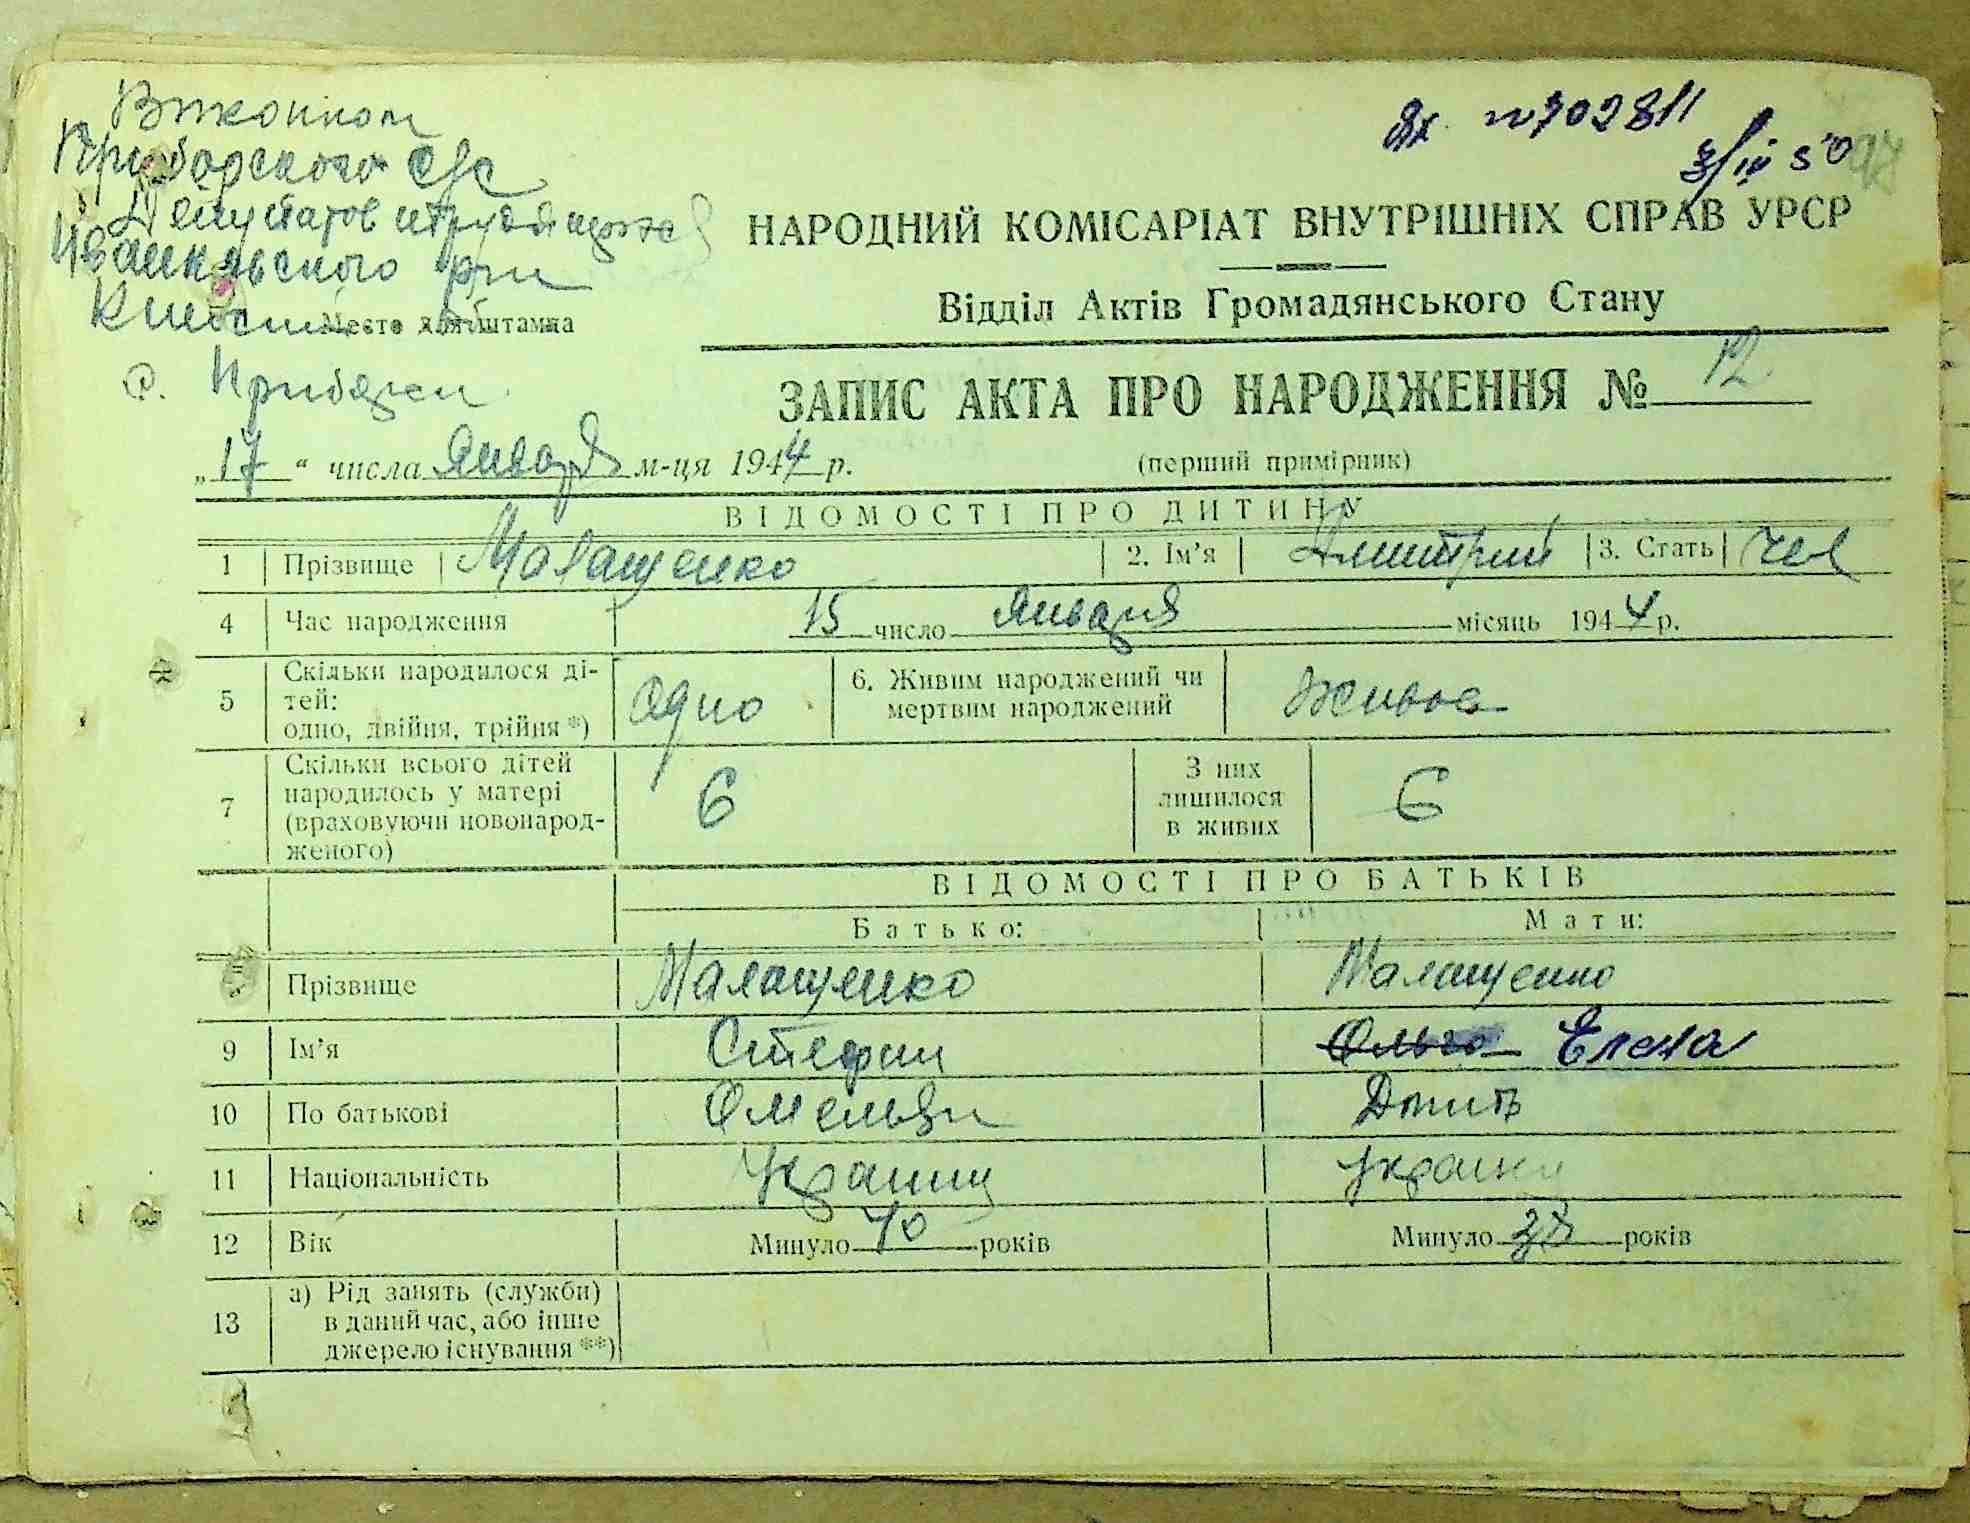 Приборского с/с
Депутатов трудящихся
Иванковского р-н
Место для штампа
ЯТ №702811
3/IV 50
98
НАРОДНИЙ КОМІСАРІАТ ВНУТРІШНІХ СПРАВ УРСР
Відділ Актів Громадянського Стану
с.
ЗАПИС АКТА ПРО НАРОДЖЕННЯ № 12
„17“ числа Января м-ця 1944 р.
(перший примірник)
ВІДОМОСТІ ПРО ДИТИНУ
1 Прізвище Малащенко 2. Ім’я Дмитрий 3. Стать чел
4 Час народження 15 число Января місяць 1944 р.
5 Скільки народилося ді-
тей:
одно, двійня, трійня *) одно
6. Живим народжений чи
мертвим народжений Живое
7 Скільки всього дітей
народилось у матері
(враховуючи новонарод-
женого) 6
З них
лишилося
в живих 6
ВІДОМОСТІ ПРО БАТЬКІВ
Батько: Мати:
Прізвище Малащенко Малащенко
9 Ім’я Стефан Ольга Елена
10 По батькові Омельян
11 Національність Украинц Украинк
12 Вік Минуло 40 років Минуло 38 років
13 а) Рід занять (служби)
в даний час, або інше
джерело існування **)